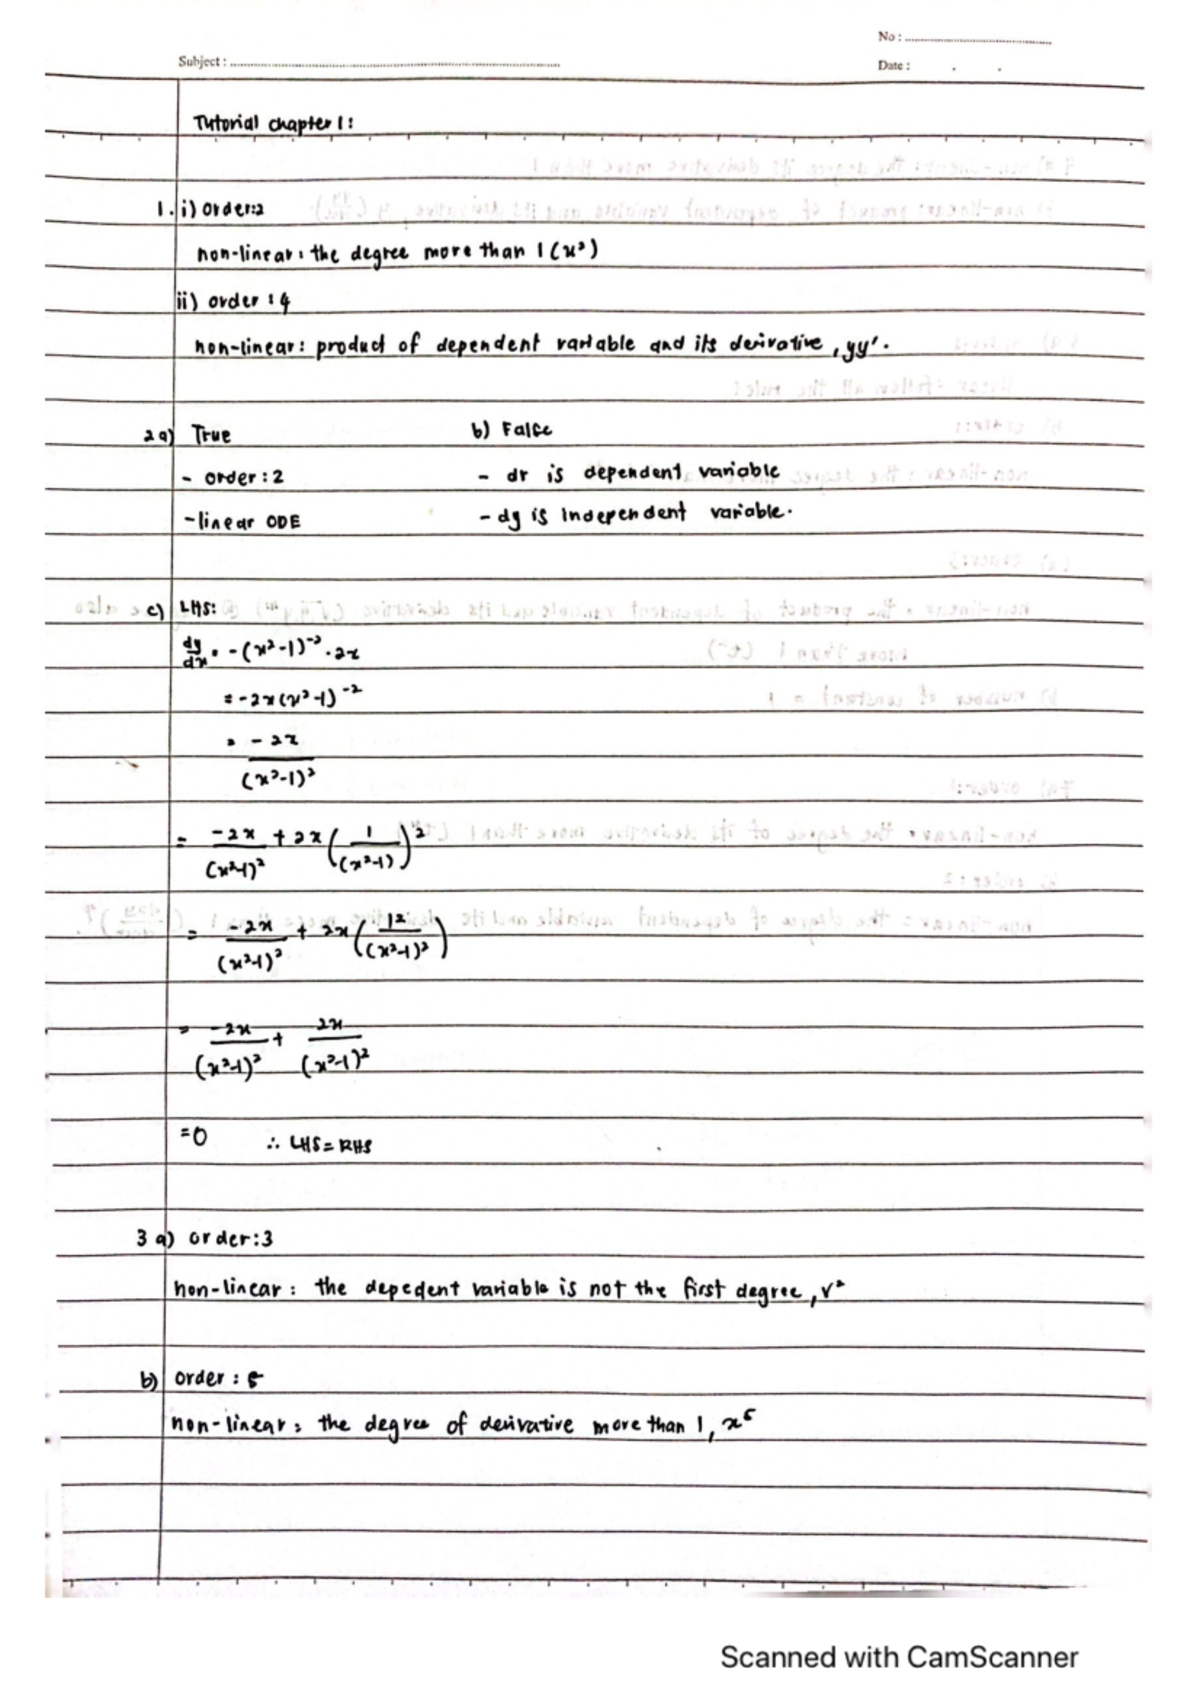 No :
Subject :
Date :
Tutorial chapter 1:
1. i) Order:2
non-linear: the degree more than 1 (x²)
ii) order : 4
non-linear: product of dependent variable and its derivative, yy'.
2 a) True
b) False
- order : 2
- dr is dependent variable
- linear ODE
- dy is independent variable.
c) LHS:
dy/dx = -(x²-1)⁻² · 2x
= -2x(x²-1)⁻²
= -2x/(x²-1)²
= -2x/(x²-1)² + 2x(1/(x²-1))²
= -2x/(x²-1)² + 2x(1²/(x²-1)²)
= -2x/(x²-1)² + 2x/(x²-1)²
=0 ∴ LHS = RHS
3 a) order:3
non-linear : the depedent variable is not the first degree, v²
b) order : 5
non-linear: the degree of derivative more than 1, x⁵
Scanned with CamScanner